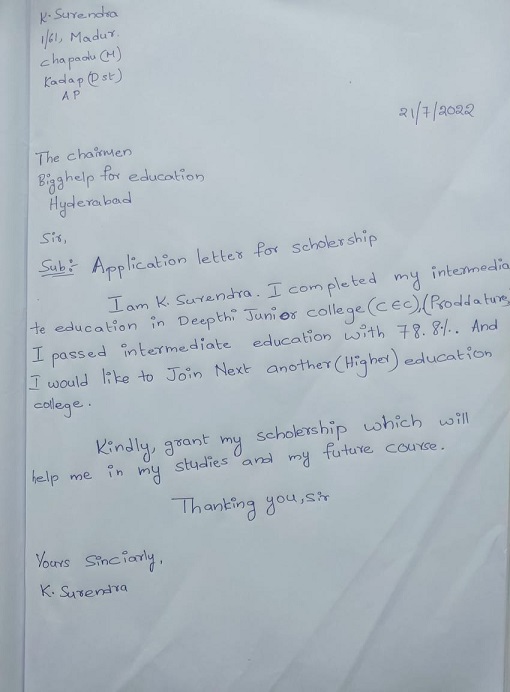 K. Surendra
1/61, Madur.
chapadu (M)
Kadap (Dst)
AP
21/7/2022
The chairmen
Bigghelp for education
Hyderabad
Sir,
Sub: Application letter for scholership
I am K. Surendra. I completed my intermedia
te education in Deepthi Junior college (CEC), (Proddature,
I passed intermediate education with 78.8%. And
I would like to Join Next another (Higher) education
college.
Kindly, grant my scholership which will
help me in my studies and my future course.
Thanking you, sir
Yours Sinciarly,
K. Surendra